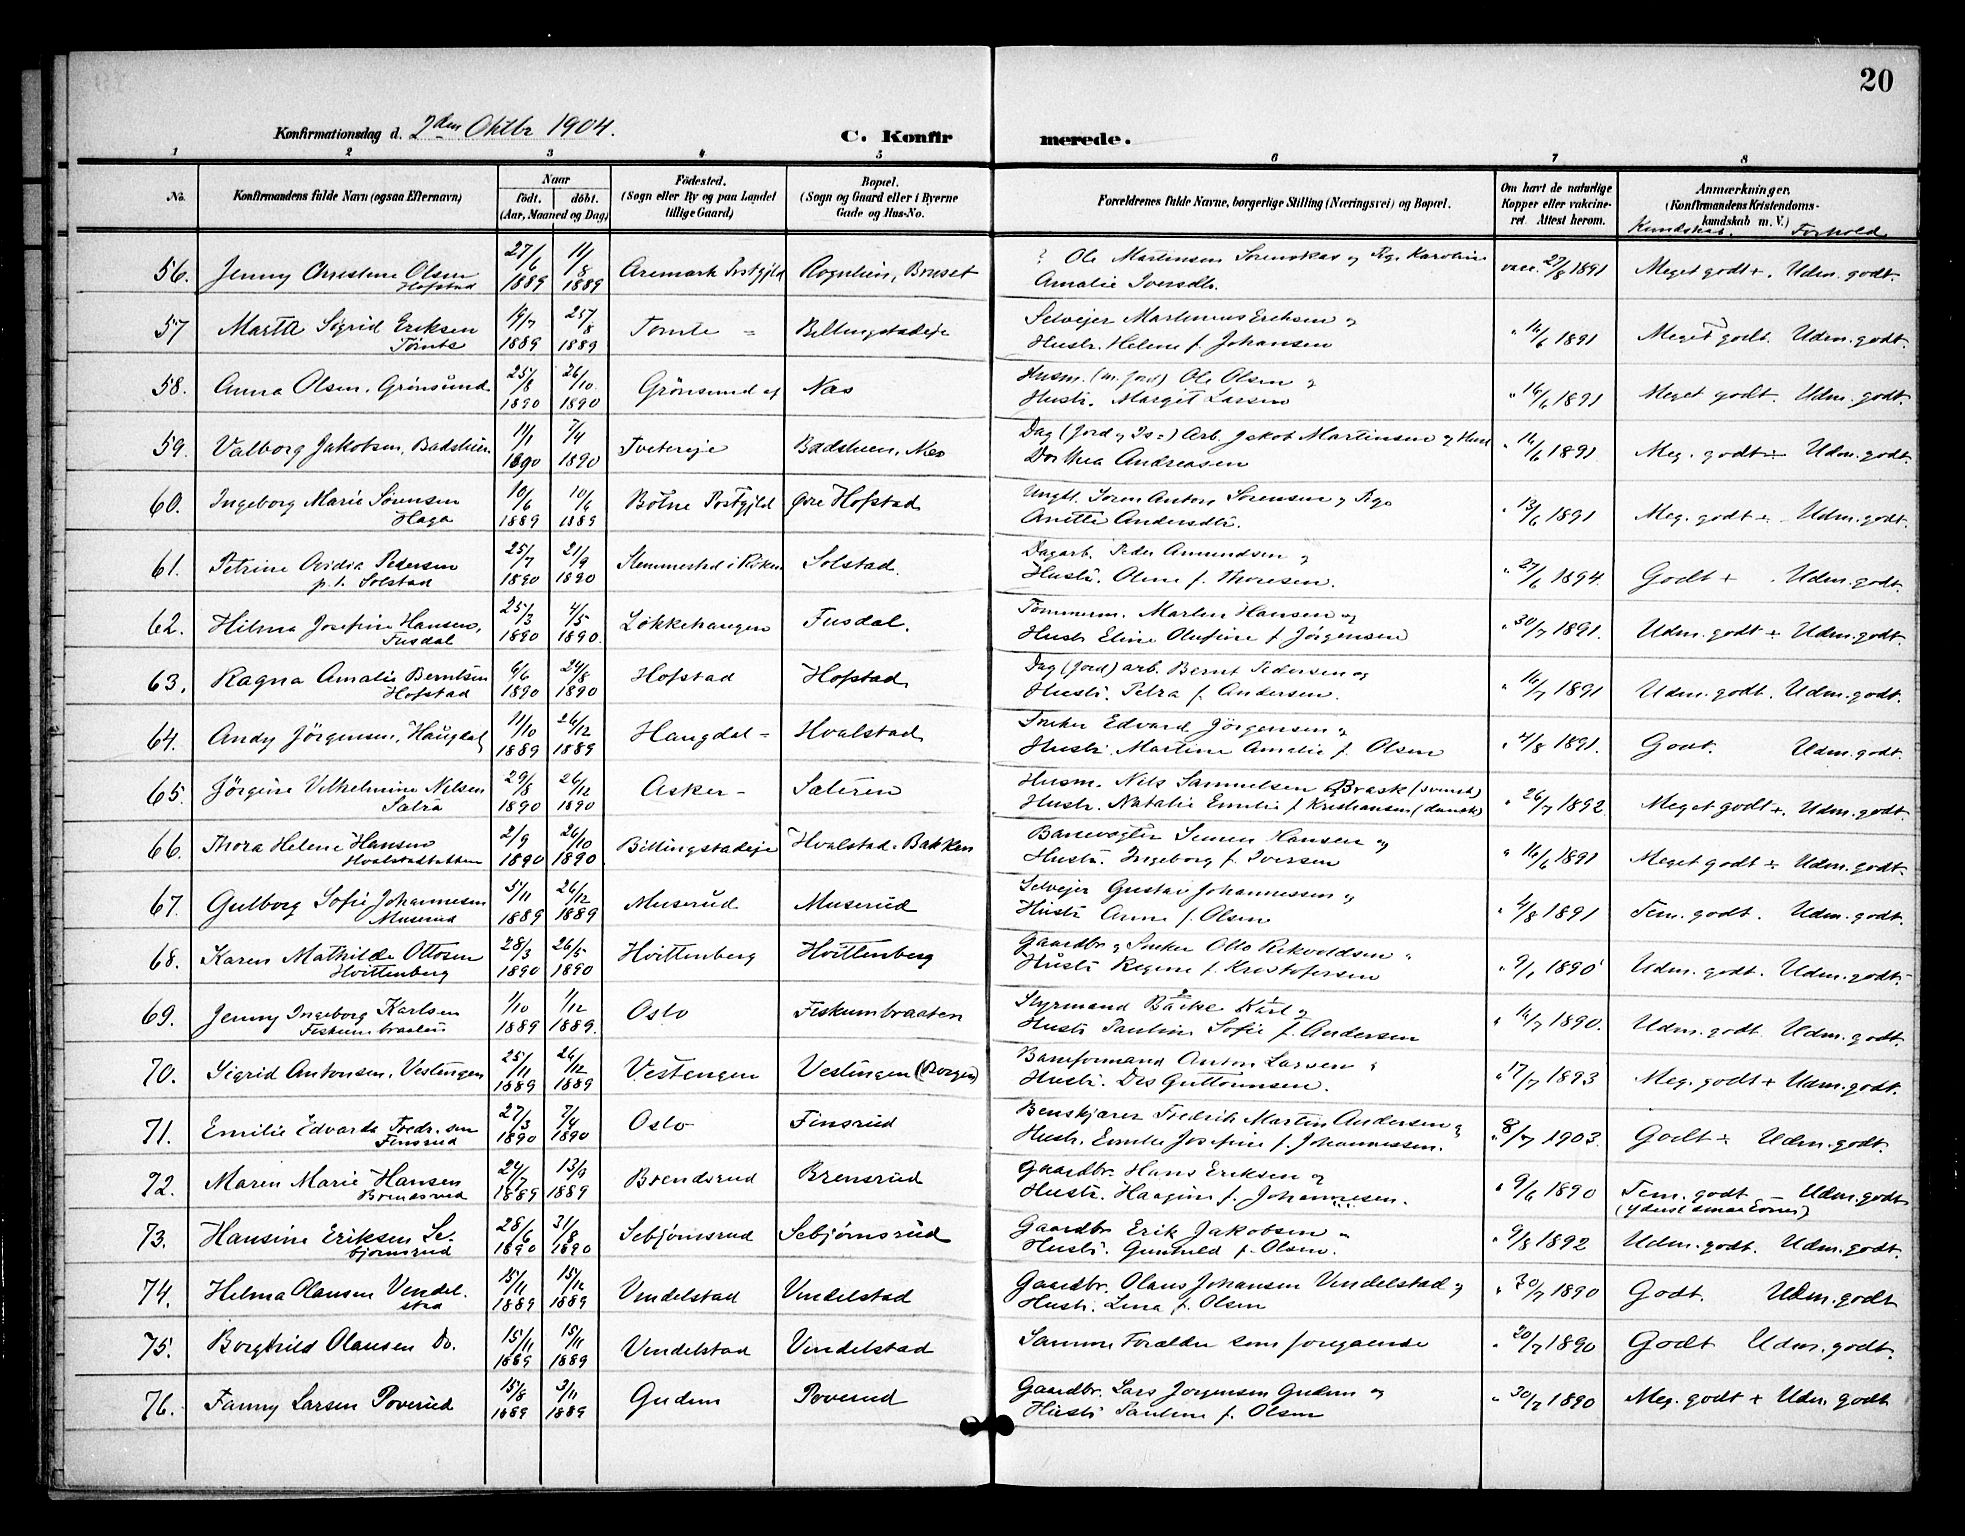 20
Konfirmationsdag d. 2den Oktbr 1904.
C. Konfirmerede.
1 2 3 4 5 6 7 8
No. Konfirmandens fulde Navn (ogsaa Efternavn) Naar født. døbt. (Aar, Maaned og Dag) Fødested. (Sogn eller By og paa Landet tillige Gaard) Bopæl. (Sogn og Gaard eller i Byerne Gade og Hus-No. Forældrenes fulde Navne, borgerlige Stilling (Næringsvei) og Bopæl. Om havt de naturlige Kopper eller vakcineret. Attest herom. Anmærkninger. (Konfirmandens Kristendomskundskab m. V.) Kundskab. Forhold
56. Jenny Christine Olsen 27/6 1889 11/8 1889 Aremark Prstgjld Rognlien, Bruset Ole Martinsen Karoline vacc. 27/8 1891 Meget godt +. Udm. godt.
Hofstad Amalie Iversdtr.
57 Marta Sigrid Eriksen 19/7 1889 25/8 1889 Tomte Billingstadeje Selvejer Martinius Eriksen og " 16/6 1891 Meget godt. Udm. godt.
Tomte Hustr. Helene f. Johansen
58. Anna Olsen, Grönsund 25/8 1890 26/10 1890 Grönsund af Næs Husm. (m. jord) Ole Olsen og " 16/6 1891 Meget godt. Udm. godt.
Hustr. Margit Larsen
59. Valborg Jakobsen, Badstuen 11/1 1890 7/4 1890 Tvetereje Badstuen, Næs Dag (Jord og Is=) Arb. Jakob Martinsen og Hust " 16/6 1891 Meg. godt ÷ Udm. godt.
Dorthea Andreasen
60. Ingeborg Marie Sörensen 10/6 1889 10/6 1889 Botne Prstgjld Øvre Hofstad Ungk. Sören Anton Sörensen og Pige " 13/6 1891 Meg. godt ÷ Udm. godt.
Haga Anette Andersdtr.
61. Petrine Ovidia Pedersen 25/7 1890 21/9 1890 Slemmestad i Röken Solstad. Dagarb. Peder Amundsen og " 27/6 1894. Godt + . Udm. godt.
p.t. Solstad Hustr. Oline f. Thoresen.
62. Hilma Josefine Hansen, 25/3 1890 4/5 1890. Lökkehaugen Fusdal. Tömmerm. Marten Hansen og " 30/7 1891. Udm. godt + Udm. godt.
Fusdal Hustr Eline Olufine f. Jörgensen
63. Ragna Amalie Berntsen 6/6 1890 24/8 1890 Hofstad Hofstad Dag (jord) arb. Bernt Pedersen og " 16/7 1891 Udm. godt. Udm. godt.
Hofstad Hustr. Petra f. Andersen.
64. Andy Jörgensen, Haugdal 11/10 1889 26/12 1889 Haugdal - Hvalstad Snker Edvard Jörgensen og " 4/8 1891. Godt. Udm. godt.
Hustr. Martine Amalie f. Olsen
65. Jörgine Vilhelmine Nilsen 29/8 1890 26/12 1890 Asker - Sæteren Husm. Nils Samuelsen Brask (svensk) " 26/7 1892 Meget godt +. Udm. godt.
Sætra Hustr. Natalie Emilie f. Kristiansen (dansk)
66. Thora Helene Hansen 2/9 1890 26/10 1890. Billingstadeje Hvalstad. Bakken Banevogter Simen Hansen og " 16/6 1891 Meget godt ÷ Udm. godt.
Hvalstadbakken Hustr. Ingeborg f. Iversen
67. Gulborg Sofie Johannesen 5/11 1889 26/12 1889 Muserud Muserud Selvejer Gustav Johannessen og " 4/8 1891 Tem. godt. Udm. godt.
Muserud Hustr Anne f. Olsen
68. Karen Mathilde Ottosen 28/3 1890 26/5 1890 Hvittenberg Hvittenberg Gaardbr og Snker Otto Rikvoldsen " " 9/1 1890 Udm. godt. Udm. godt.
Hvittenberg Hustr Regine f. Kristofersen
69. Jenny Ingeborg Karlsen 1/10 1889 1/12 1889. Oslo Fiskumbraaten Styrmand Bache Karl og " 16/7 1890. Udm. godt Udm. godt.
Fiskumbraaten Hustr Pauline Sofie f. Andersen
70. Sigrid Antonsen, Vestengen 25/11 1889 26/12 1889 Vestengen Vestengen (Borgen) Baneformand Anton Larsen " " 17/7 1893 Meg. godt + Udm. godt.
Hustr. Des Guttormsen.
71. Emilie Edvarda Fredr.sen 27/3 1890 7/4 1890 Oslo Finsrud Benskjærer Fredrik Martin Andersen og " 8/7 1903. Godt ÷ Udm. godt.
Finsrud Hustr. Emilie Josefine f. Johannessen.
72. Maren Marie Hansen 24/7 1889 13/9 1889 Brendsrud Brensrud Gaardbr. Hans Eriksen og " 9/6 1890 Tem. godt Udm. godt
Brendsrud Hustr. Haagine f. Johannesen.
73. Hansine Eriksen Se- 28/6 1890 31/8 1890 Sebjörnsrud Sebjörnsrud Gaardbr Erik Jakobsen " " 9/8 1892 Udm. godt. Udm. godt.
björnsrud Hustr. Gunhild f. Olsen.
74. Helma Olausen Vendel- 15/11 1889 15/12 1889 Vendelstad Vendelstad Gaardbr. Olaus Johansen Vendelstad og " 30/7 1890 Godt. Udm. godt
stad Hustr. Lina f. Olsen
75. Borghild Olausen Do. 15/11 1889 15/11 1889 Vendelstad Vendelstad Samme Forældre som foregaaende " 20/7 1890 Godt Udm. godt.
76. Fanny Larsen Poverud 15/8 1889 3/11 1889 Gudem Poverud Gaardbr. Lars Jorgensen Gudem og " 30/7 1890 Meg. godt + Udm. godt
Hustr Pauline f. Olsen